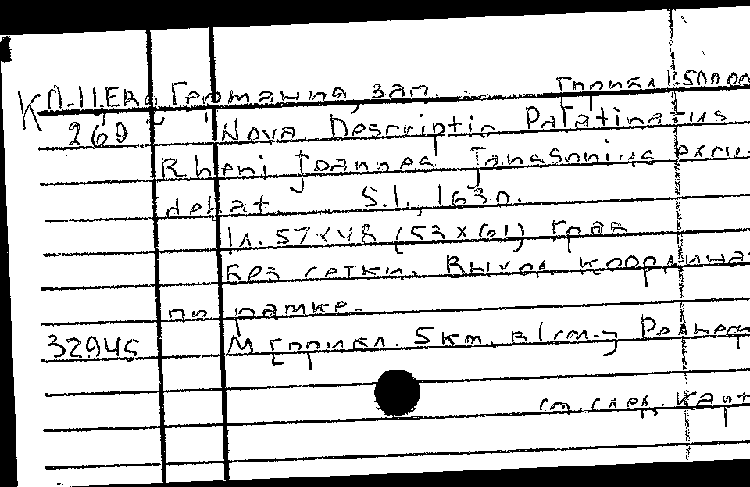 К П-Ц.Евр. Германия, зап. [Прибл. 1:500000
269 Nova Descriptio Palatinatus
Rheni Joannes Janssonius excu
debat. S.l., 1630.
1л. 57х48 (53х61) Грав
Без сетки. Выход координат
по рамке.
32945 М [прибл. 5 км. в 1 см.] Рельеф
см. след. карт